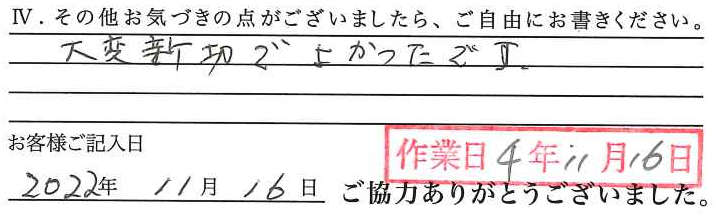 Ⅳ．その他お気づきの点がございましたら、ご自由にお書きください。
大変新切でよかったです。
お客様ご記入日
作業日4年11月16日
2022年 11月16日 ご協力ありがとうございました。